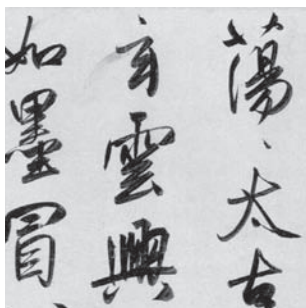 蕩、太古
玄雲興
如墨冒